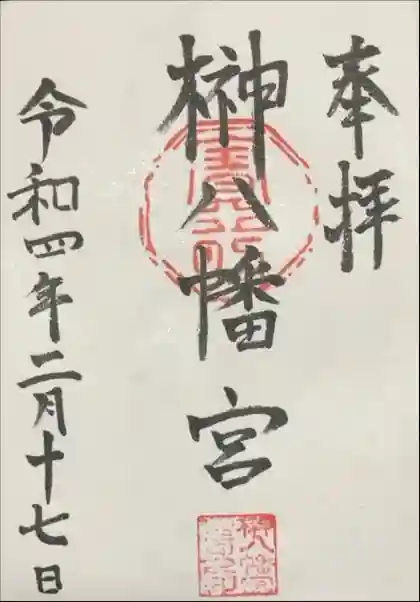 奉拝
榊八幡宮
令和四年二月十七日